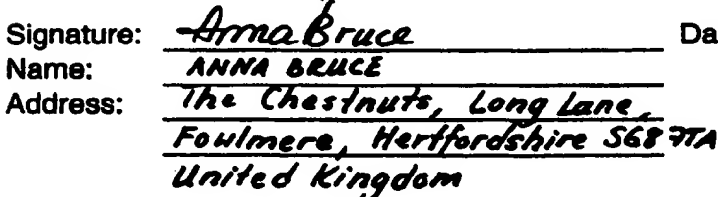 Signature: Anna Bruce Da
Name: ANNA BRUCE
Address: The Chestnuts, Long Lane,
Fowlmere, Hertfordshire SG8 7TA
United Kingdom